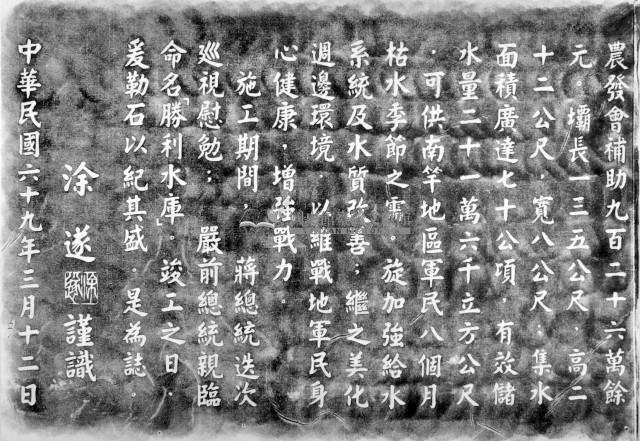 農發會補助九百二十六萬餘
元。壩長一三五公尺,高二
十二公尺,寬八公尺,集水
面積廣達七十公頃,有效儲
水量二十一萬六千立方公尺
,可供南竿地區軍民八個月
枯水季節之需。旋加強給水
系統及水質改善;繼之美化
週邊環境,以維戰地軍民身
心健康,增強戰力。
施工期間,蔣總統迭次
巡視慰勉;嚴前總統親臨
命名「勝利水庫」。竣工之日,
爰勒石以紀其盛。是為誌。
涂遂 謹識
中華民國六十九年三月十二日